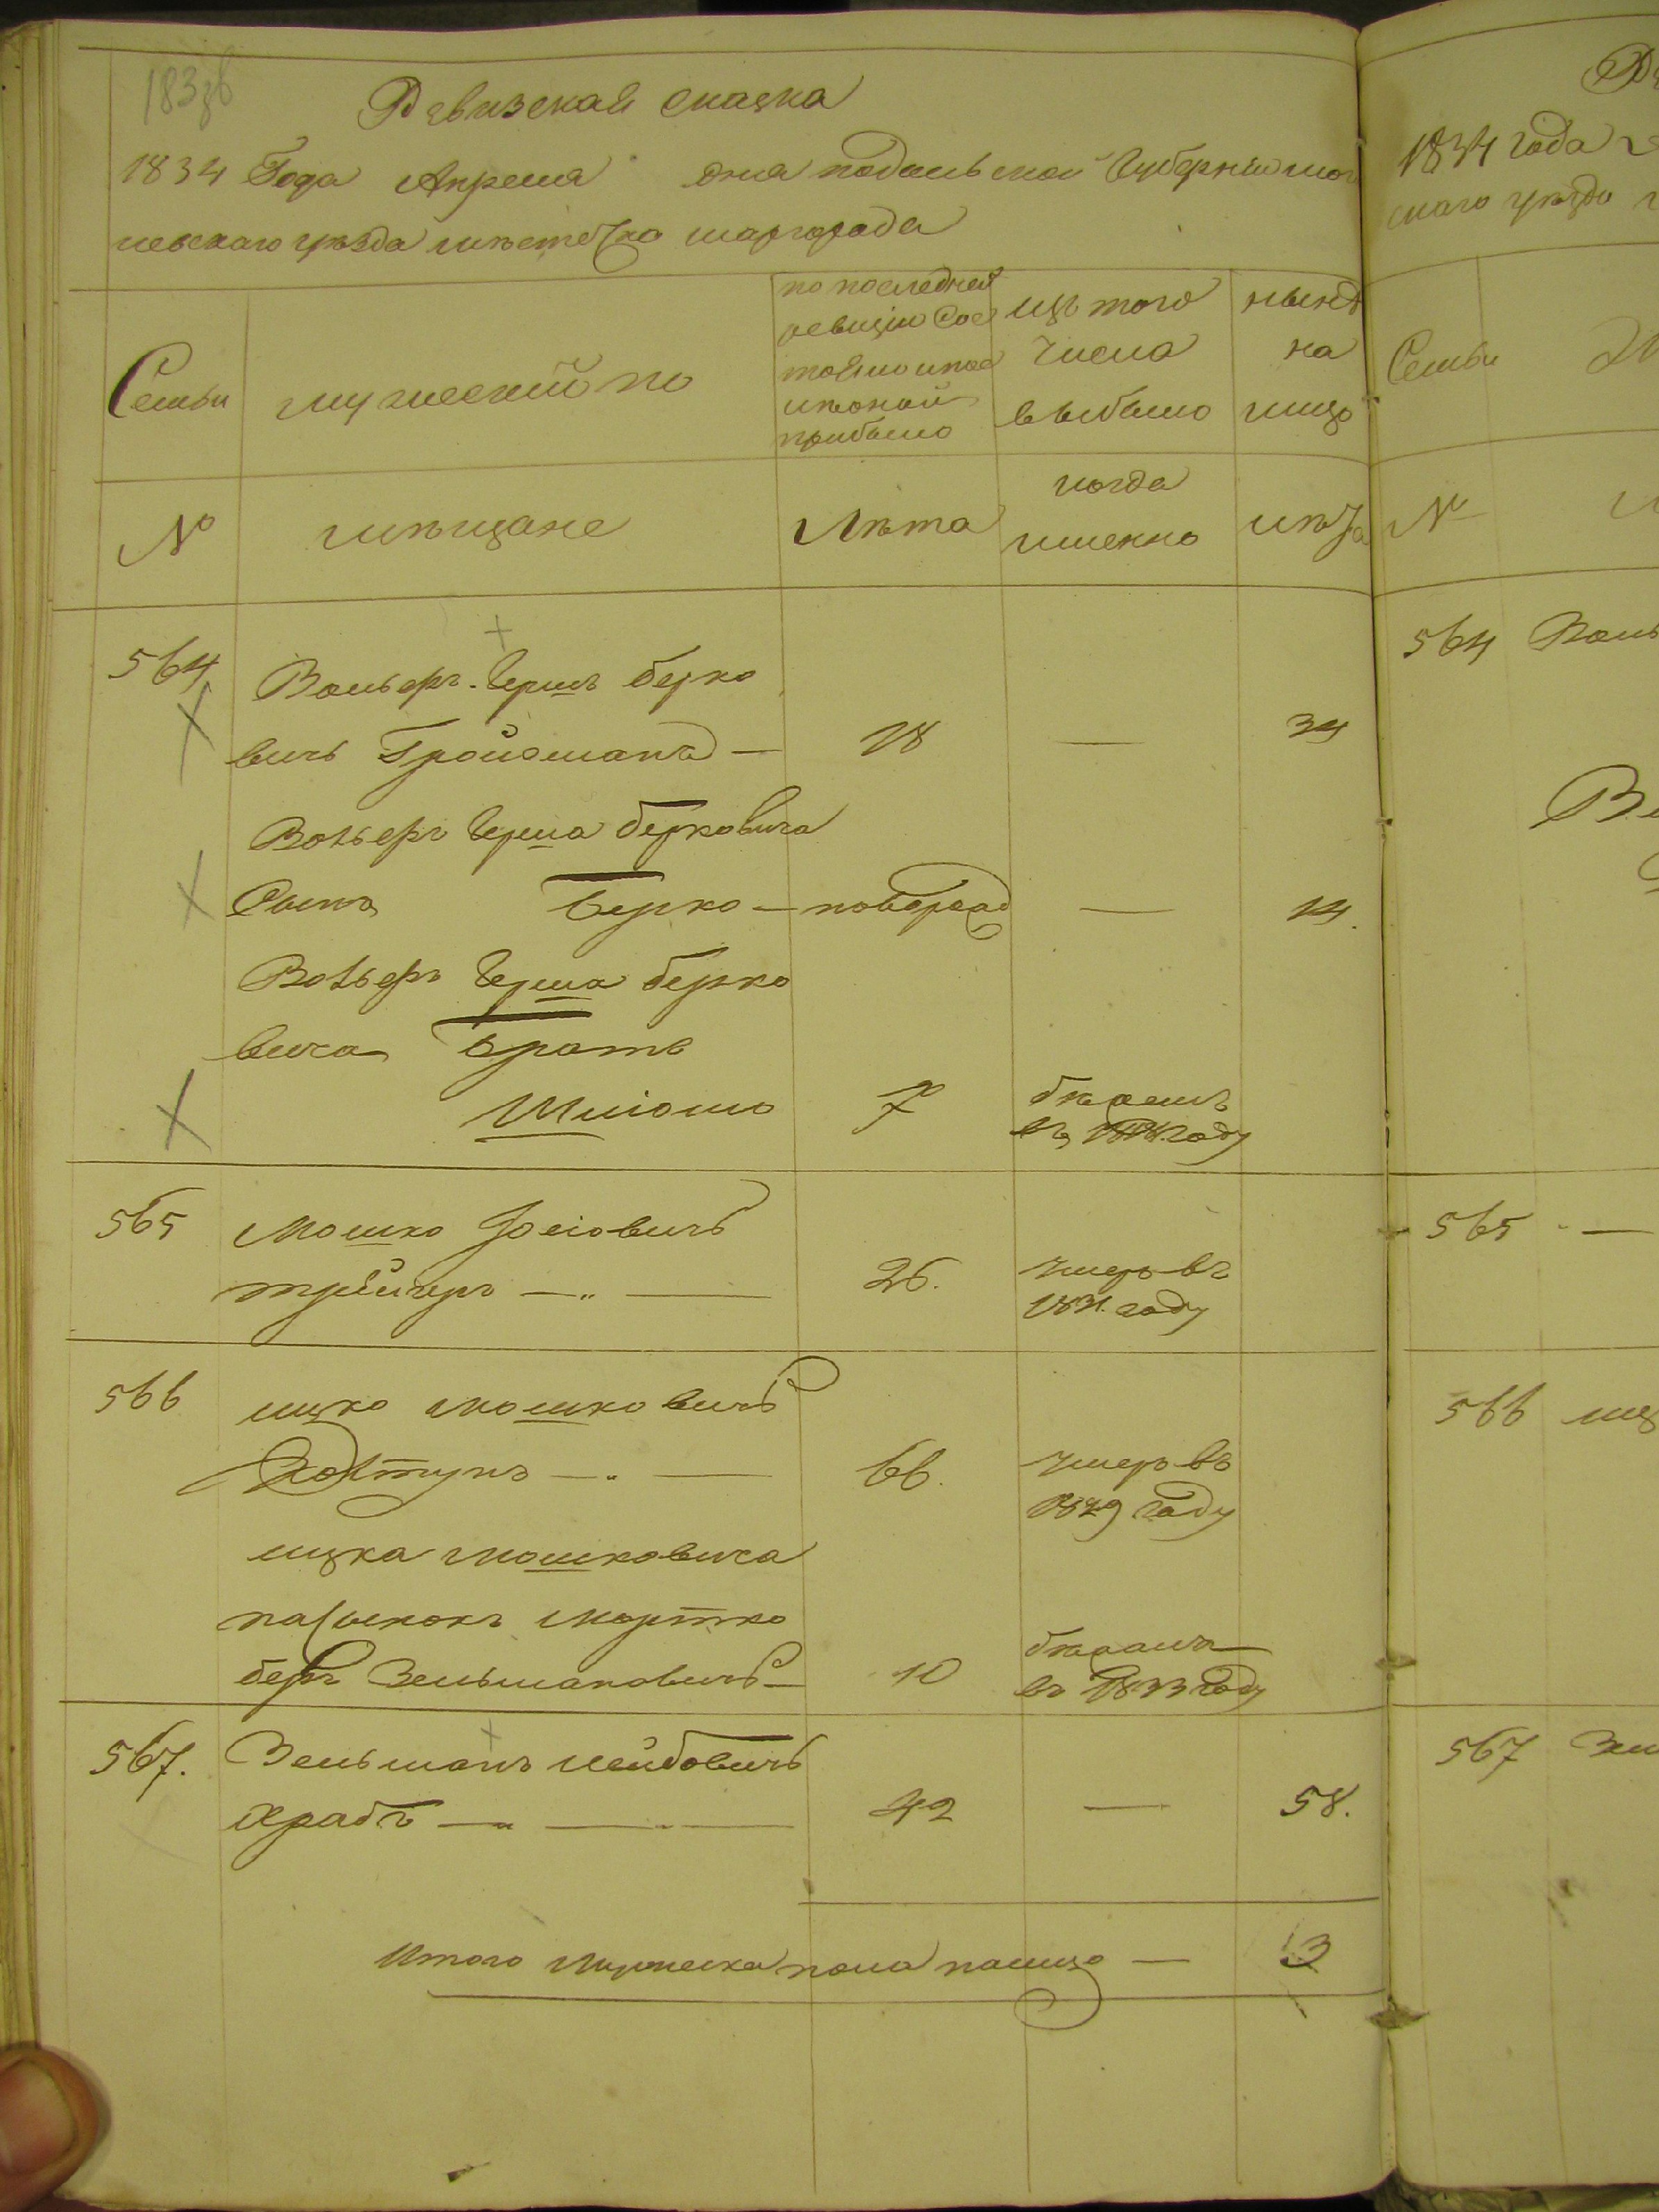 183зв
Ревизская сказка
1834 Года Апреля дня подольской Губернии мог
илевскаго уѣзда мѣстечка шаргорода
Семьи
мужескій по
по последней
ревизіи Сос
тояло и пос
ле оной
прибыло
изъ того
числа
выбыло
нынѣ
на
лицо
№
мѣщане
Лѣта
когда
именно
лѣта
564
Вольфъ Гершъ берко
вичъ Гройсманъ —
18
—
34
Вольфъ Герша берковича
Сынъ Берко —
новорожд
—
14.
Вольфъ Герша берко
вича Братъ
Шліомо
7
бѣжалъ
въ году
565
Мошко Іосіовичъ
26.
умеръ въ
1831. году
566
ицко мошковичъ
Колтунъ — „ —
66.
умеръ въ
1829 году
ицка мошковича
пасынокъ мортко
беръ Зельмановичъ —
10
бѣжалъ
въ 1833 году
567.
Зельманъ лейбовичъ
Храбъ — „ — —
42
—
58.
Итого Мужеска пола налицо —
3
1834 года
скаго уѣзда
Семьи
№
564
565 —
566 иц
567 Зел